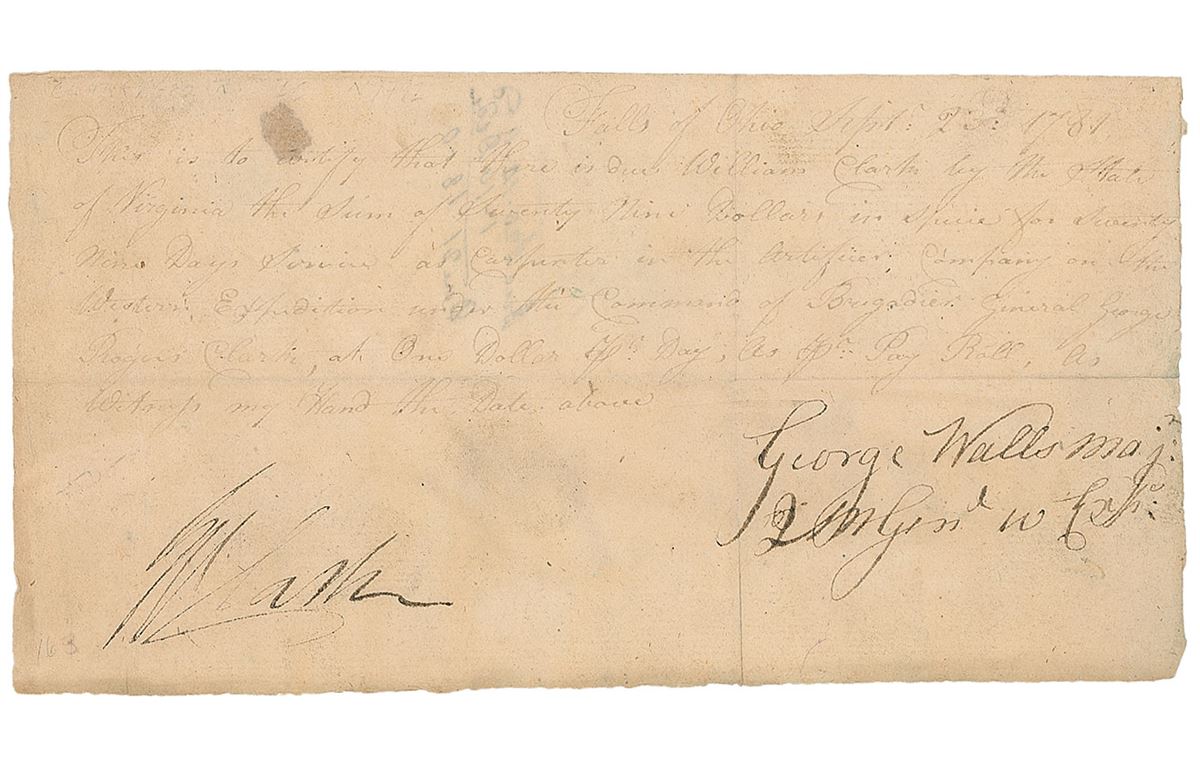 Falls of Ohio Sept.r 23d: 1781
This is to certify that there is due William Clark by the State
of Virginia the Sum of Seventy Nine Dollars in specie for Seventy
Nine Days Service as Carpenter in the Artificer Company on the
Western Expedition under the Command of Brigadier General George
Rogers Clark, at One Dollar pr. Day, As pr. Pay Roll, As
Witness my Hand the Date above
George Walls Maj.r
Q M Gen.l W Exp.n
W Clark
168